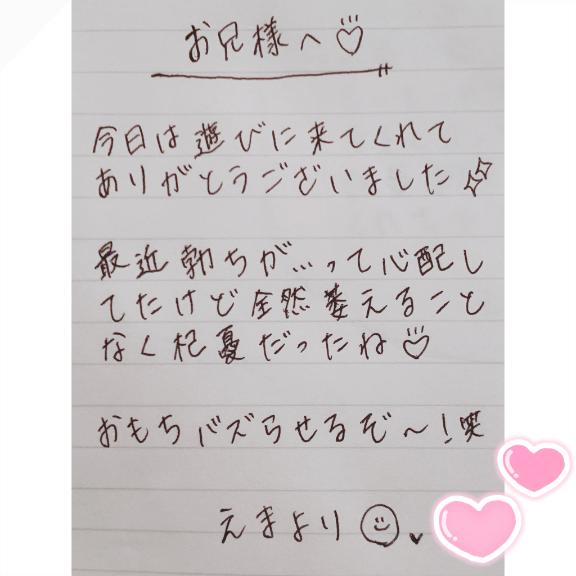 お兄様へ♡
今日は遊びに来てくれて
ありがとうございました✨
最近勃ちが…って心配し
てたけど全然萎えること
なく杞憂だったね♡
おもちバズらせるぞ〜！笑
えまより☺♥